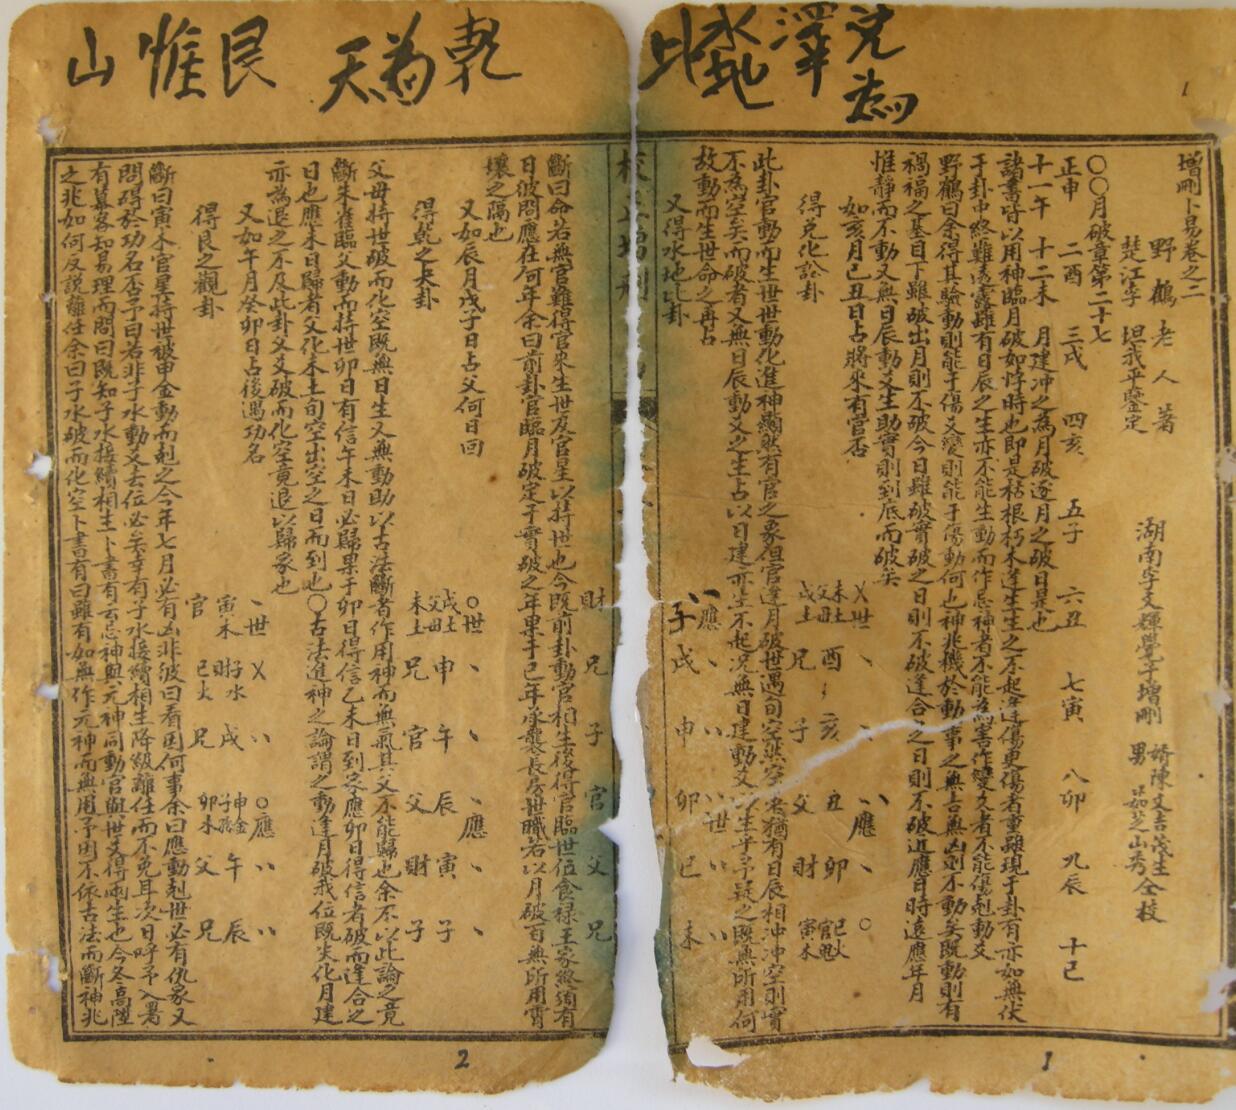 兌為澤
水地比
乾為天
艮惟山
1
增刪卜易卷之二
野鶴老人著
楚江李坦我平鑒定
湖南李文輝覺子增刪
婿陳文吉茂生
男茹芝山秀仝校
〇〇月破章第二十七
正申 二酉 三戌 四亥 五子 六丑 七寅 八卯 九辰 十巳
十一午 十二未 月建冲之為月破逐月之破日是也
諸書皆以用神臨月破如悖時也即是枯根朽木逢生生之不起逢傷更傷者重雖現于卦有亦如無伏
于卦中終難透露雖有日辰之生亦不能生動而作忌神者不能為害作變爻者不能傷剋動爻
野鶴曰余得其驗動則能于傷爻變則能于傷動何也神兆機於動事之無吉無凶則不動矣既動則有
禍福之基目下雖破出月則不破今日雖破實破之日則不破逢合之日則不破近應日時遠應年月
惟靜而不動又無日辰動爻生助實則到底而破矣
如亥月己丑日占將來有官否
得兌化訟卦
乂世 、 、 〃應 、 〇
未土 父母 酉 亥 丑 卯 巳火 官鬼
戌土 兄 子 父 財 寅木
此卦官動而生世世動化進神顯然有官之象但官逢月破世遇旬空然空者猶有日辰相冲冲空則實
不為空矣而破者又無日辰動爻之生占以日建亦生不起况無日建動爻以生乎予疑之既無所用何
故動而生世命之再占
又得水地比卦
〃應 、 〃 〃世 〃 〃
子 戌 申 卯 巳 未
財 兄 子 官 父 兄
斷曰命若無官難得官來生世及官星以持世也今既前卦動官相生後得官臨世位食祿王家終須有
日彼問應在何年余曰前卦官臨月破定于實破之年果于巳年承襲長房世職若以月破百無所用霄
壤之隔也
又如辰月戊子日占父何日回
得乾之夬卦
〇世 、 、 、應 、 、
戌土 父母 申 午 辰 寅 子
未土 兄 官 父 財 子
父母持世破而化空既無日生又無動助以古法斷者作用神而無氣其父不能歸也余不以此論之竟
斷朱雀臨父動而持世卯日有信午未日必歸果于卯日得信乙未日到家應卯日得信者破而逢合之
日也應未日歸者父化未土旬空出空之日而到也〇古法進神之論謂之動逢月破我位既失化月建
亦為退之不及此卦父爻破而化空竟退以歸家也
又如午月癸卯日占後遇功名
得艮之觀卦
、世 乂 〃 〇應 〃 〃
寅木 官 子水 財 戌 兄 申金 子孫 午 父 辰 兄
巳火 卯木
斷曰寅木官星持世被申金動而剋之今年七月必有凶非彼曰看因何事余曰應動剋世必有仇家又
問碍於功名否予曰若非子水動爻去位必矣幸有子水接續相生降級離任而不免耳次日呼予入署
有幕客知易理而問曰既知子水接續相生卜書有云忌神與元神同動官與世爻得兩生也今冬高陞
之兆如何反說離任余曰子水破而化空卜書有曰雖有如無作元神而無用予因不依古法而斷神兆
2
1